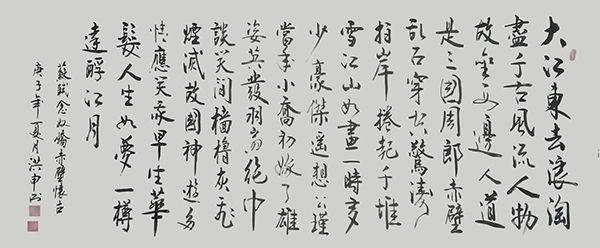 大江東去浪淘
盡千古風流人物
故壘西邊人道
是三國周郎赤壁
乱石穿空驚濤
拍岸捲起千堆
雪江山如畫一時多
少豪傑遥想公瑾
當年小喬初嫁了雄
姿英發羽扇綸巾
談笑間檣櫓灰飛
煙滅故國神遊多
情應笑我早生華
髮人生如夢一樽
還酹江月
蘇軾念奴嬌赤壁懷古
庚子年夏月洪申书